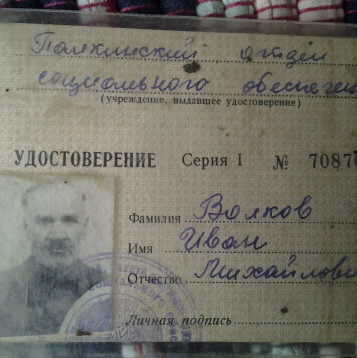 Палкинский отдел
социального обеспечен
(учреждение, выдавшее удостоверение)
УДОСТОВЕРЕНИЕ Серия I № 7087
Фамилия Волков
Имя Иван
Отчество Михайлови
Личная подпись